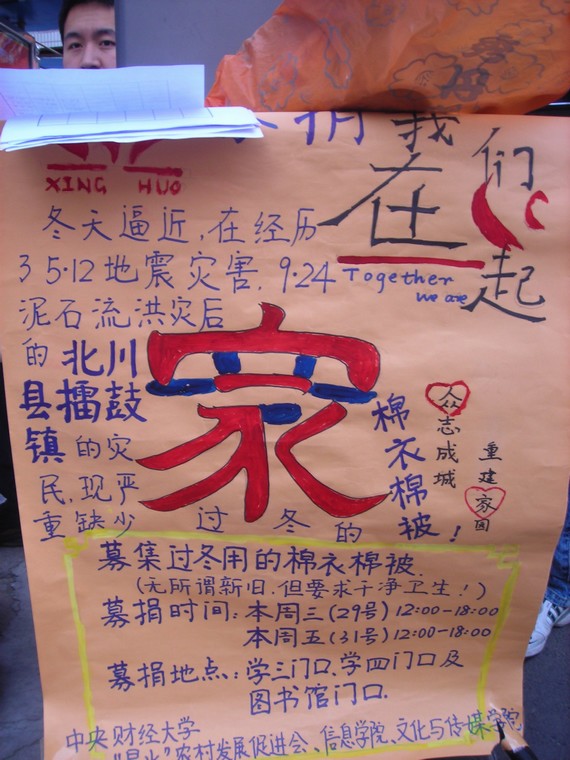 捐 我们
XING HUO
在一起
Together
we are
冬天逼近，在经历
35·12地震灾害，9·24
泥石流洪灾后
的北川
县擂鼓
镇的灾
民，现严
重缺少过冬的
棉衣棉被！
家
众志成城
重建家园
募集过冬用的棉衣棉被
（无所谓新旧，但要求干净卫生！）
募捐时间：本周三（29号）12:00-18:00
本周五（31号）12:00-18:00
募捐地点：学三门口、学四门口及
图书馆门口.
中央财经大学
"星火"农村发展促进会、信息学院、文化与传媒学院